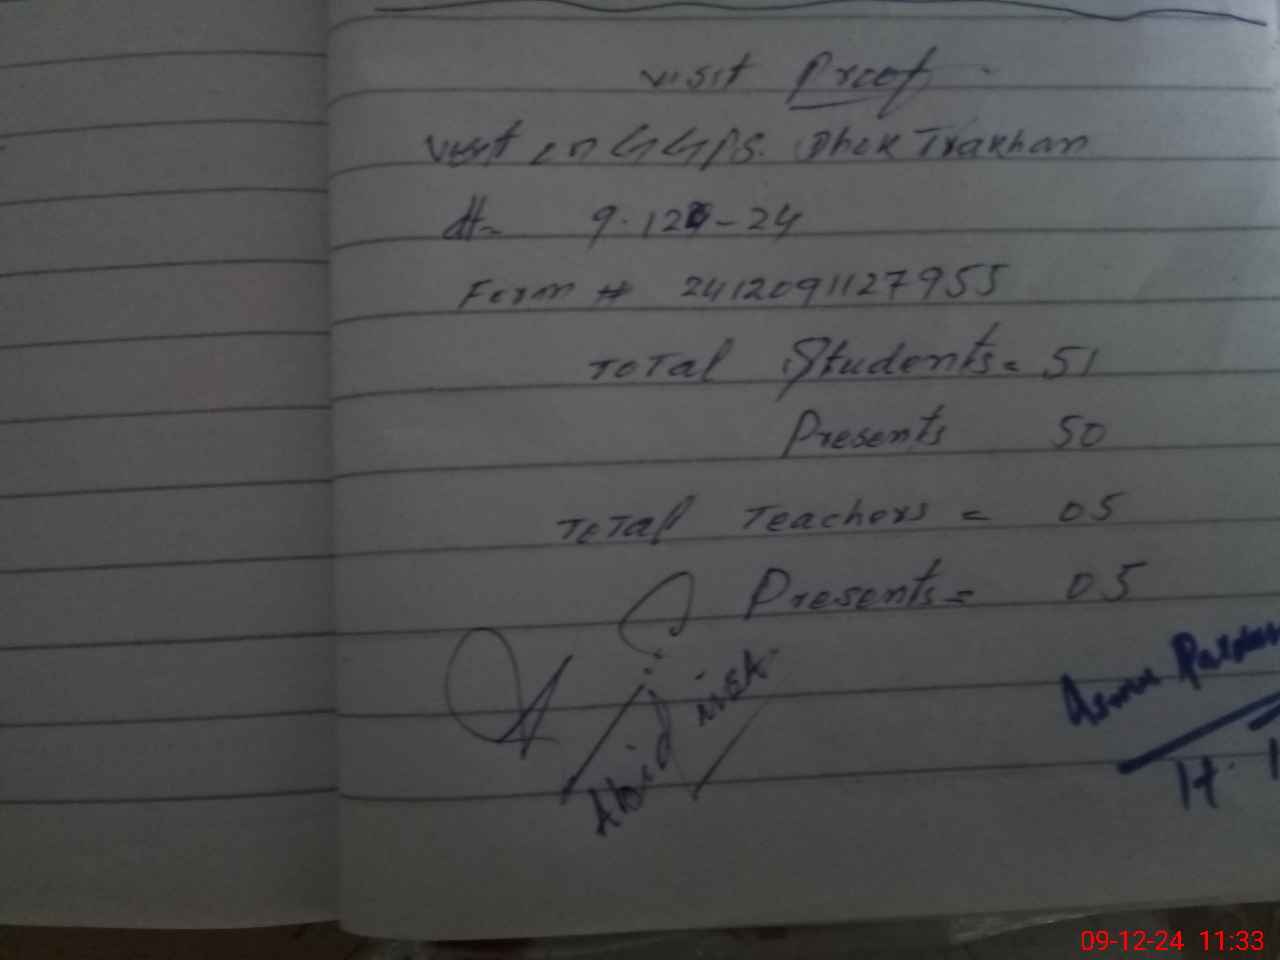 visit Proof
Visit on GGPS. Dhok Trakhan
dt- 9.12-24
Form # 2412091127955
Total Students = 51
Presents 50
Total Teachers = 05
Presents = 05
Abid
Asma
H.
09-12-24 11:33